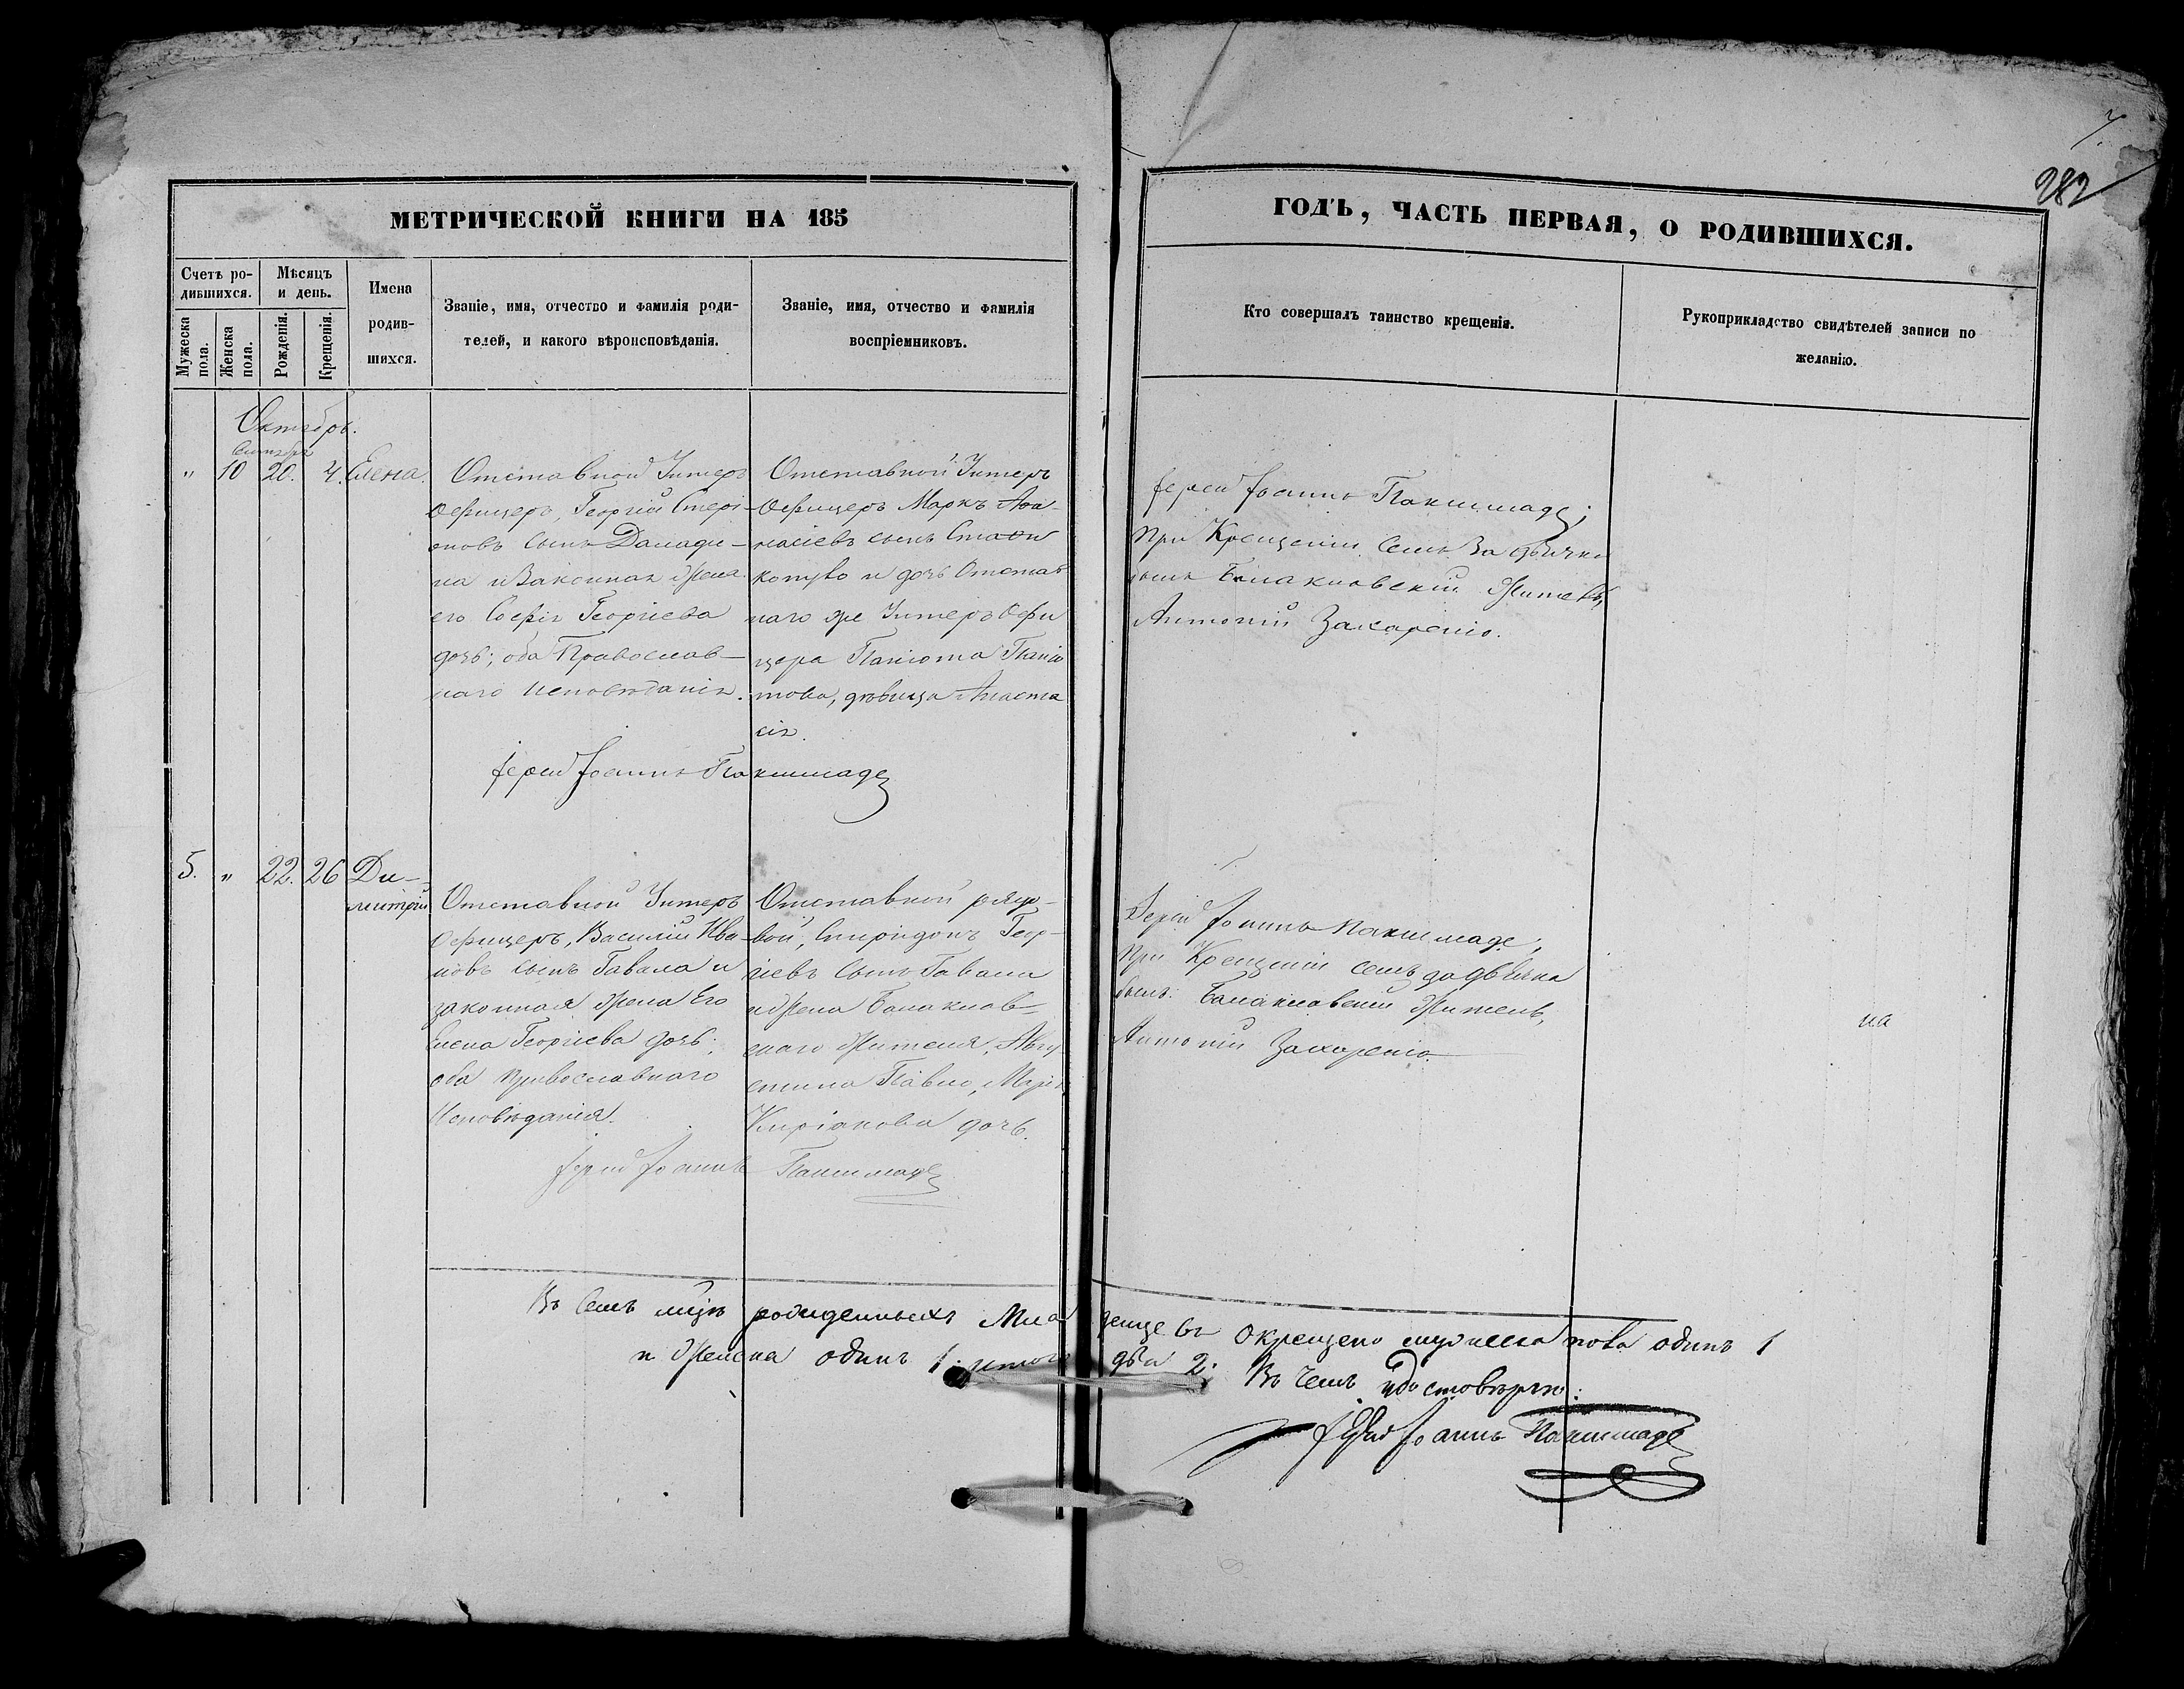 7.
282
МЕТРИЧЕСКОЙ КНИГИ НА 185
ГОДЪ, ЧАСТЬ ПЕРВАЯ, О РОДИВШИХСЯ.
Счетъ ро-
дившихся.
Мѣсяцъ
и день.
Мужеска
пола.
Женска
пола.
Рожденія.
Крещенія.
Имена
родив-
шихся.
Званіе, имя, отчество и фамилія роди-
телей, и какого вѣроисповѣданія.
Званіе, имя, отчество и фамилія
воспріемниковъ.
Кто совершалъ таинство крещенія.
Рукоприкладство свидѣтелей записи по
желанію.
Октябрь.
Сентября
" 10 20. 4. Елена.
Отставной Унтеръ
Офицеръ, Георгій Стері-
оновъ сынъ Дамади-
на и Законная жена
его Софія Георгіева
дочь; оба Православ-
наго исповѣданія.
Отставной Унтеръ
Офицеръ Маркъ Аѳа-
насіевъ сынъ
и дочь Отстав
наго же Унтеръ Офи
цера Паніота Паніо
това, дѣвица Анаста
сія.
Іерей Іоаннъ Пакшмаде
Іерей Іоаннъ Пакшмаде;
При Крещеніи семъ За дьячка
былъ Балаклавскій Житель,
Антоній Захареніо.
5. " 22. 26 Ди-
митрій
Отставной Унтеръ
Офицеръ, Василій Ива-
новъ сынъ Гавала и
законная жена Его
Елена Георгіева дочь;
оба Православнаго
Исповѣданія.
Отставной рядо-
вой, Спиридонъ Геор-
гіевъ сынъ Гавала
и Жена Балаклав-
скаго Жителя, Авгу
стина Павло, Марія
Киріакова дочь.
Іерей Іоаннъ Пакшмаде
Іерей Іоаннъ Пакшмаде;
При Крещеніи семъ за дьячка
былъ Балаклавскій Житель,
Антоній Захареніо.
на
Въ семъ мцѣ рожденныхъ Младенцевъ окрещено мужеска пола одинъ 1
и Женска одинъ 1. итого два 2. Въ чемъ удостовѣряю:
Іерей Іоаннъ Пакшмаде